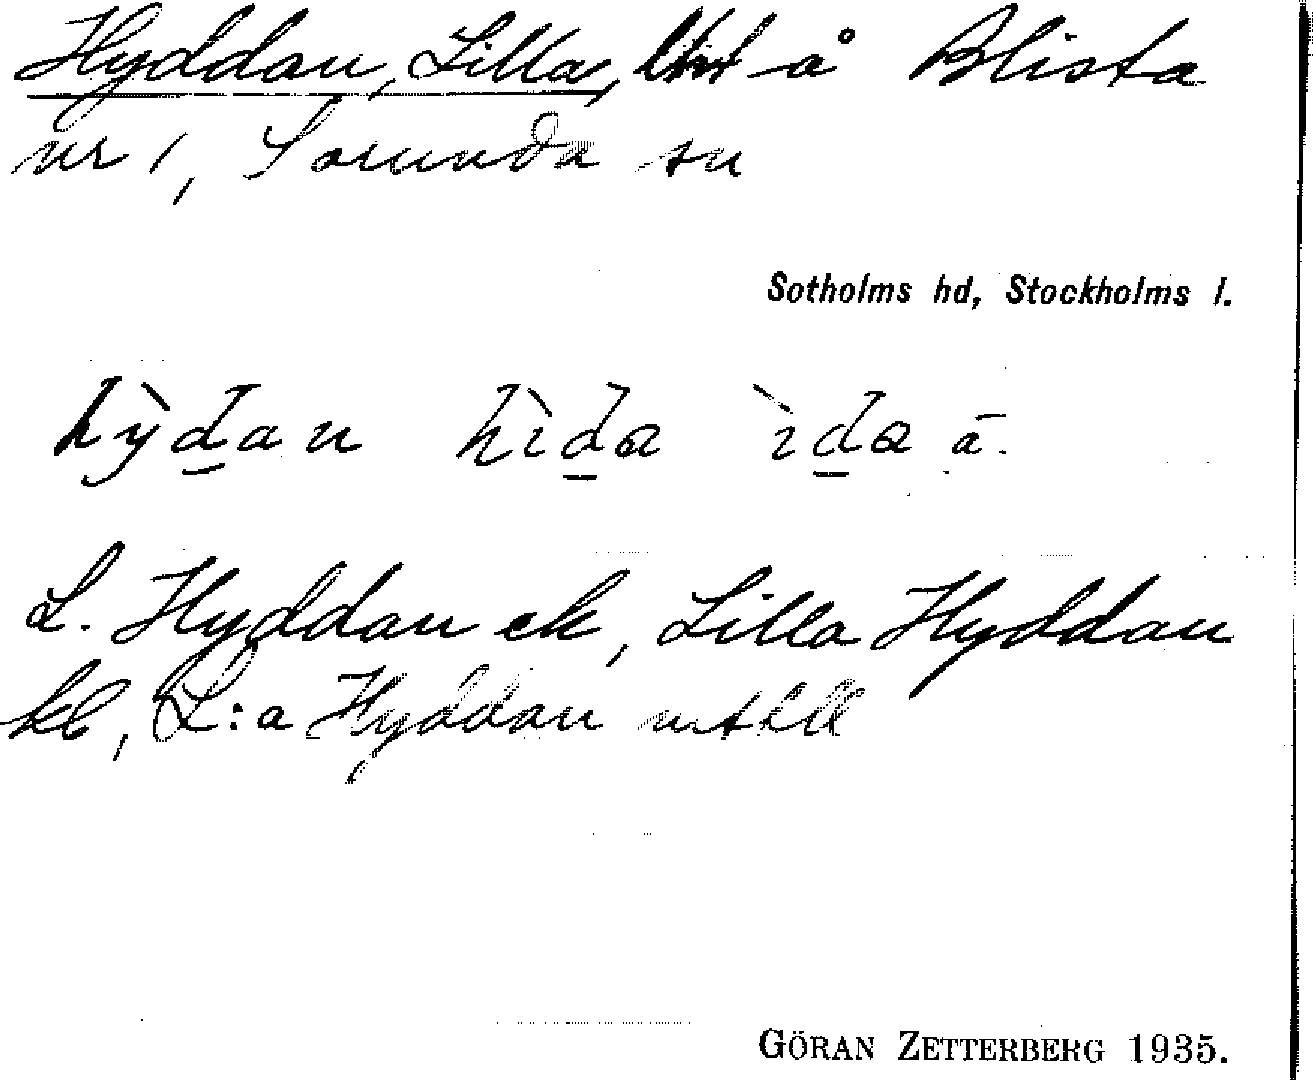 Hyddan, Lilla, å Blista
nr 1, Sorunda sn
Sotholms hd, Stockholms l.
hỳdan hìda ìda ā.
L. Hyddan ek, Lilla Hyddan
kb, L:a Hyddan mthll
GÖRAN ZETTERBERG 1935.